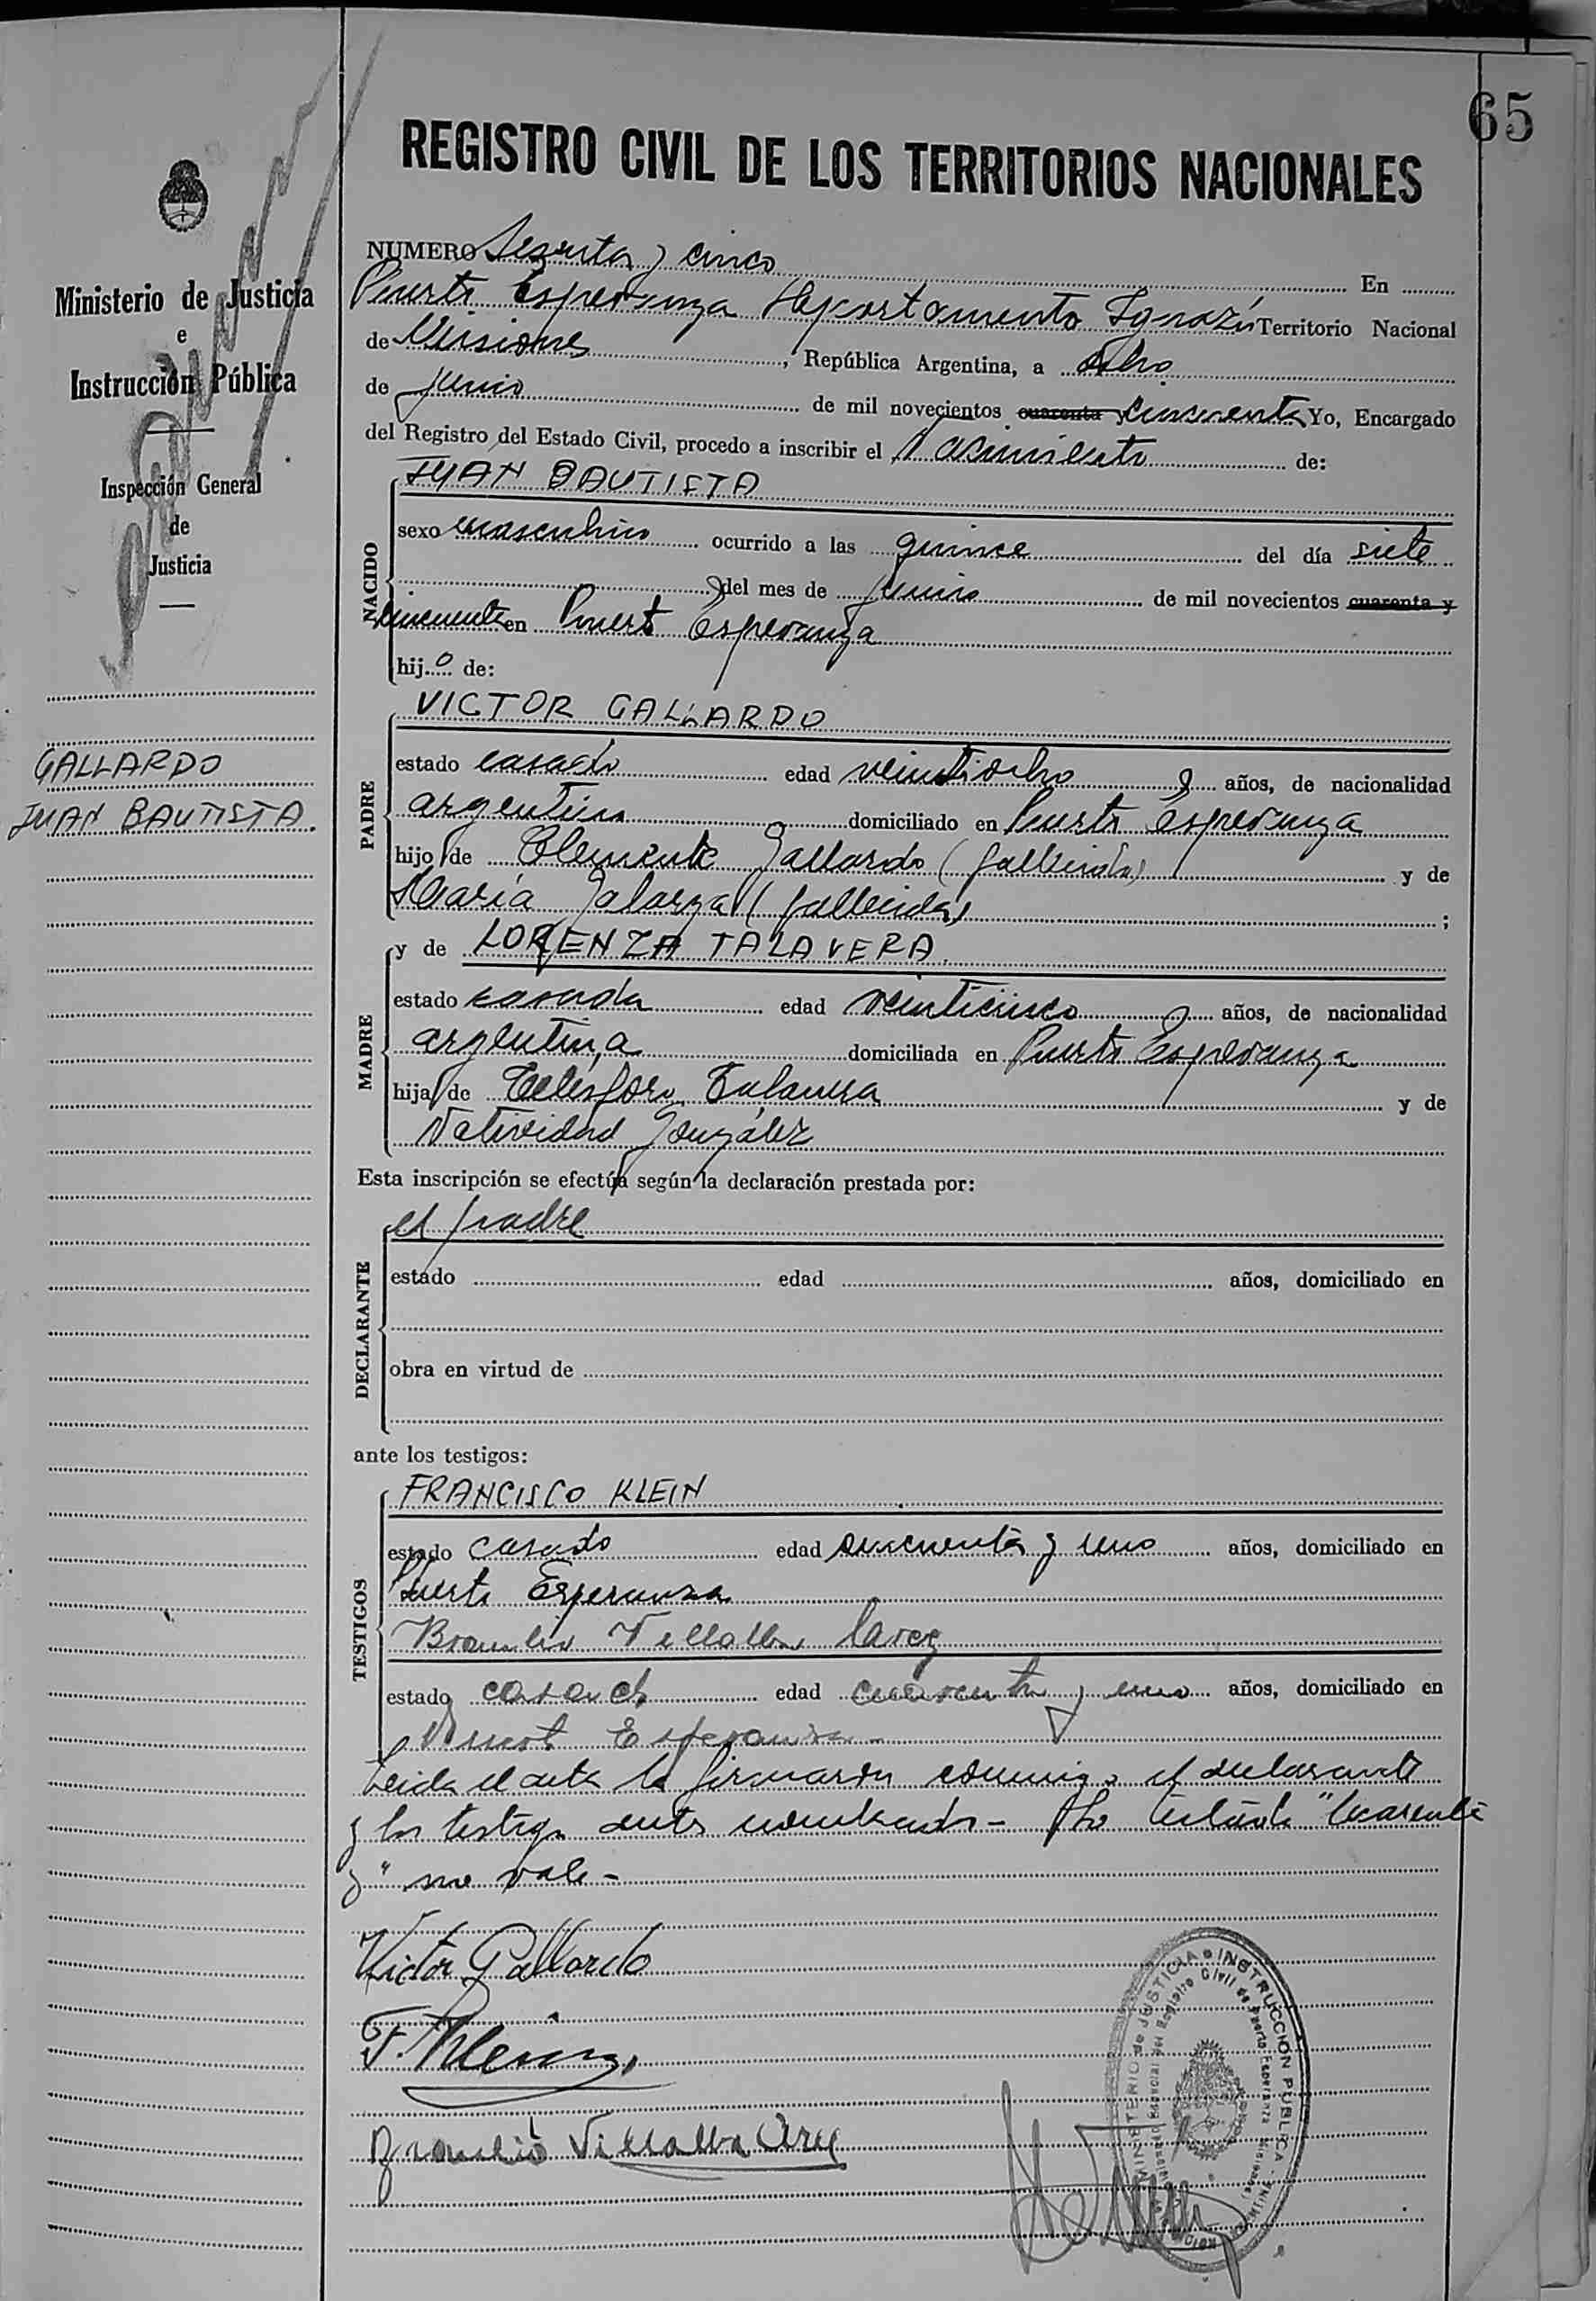 65
REGISTRO CIVIL DE LOS TERRITORIOS NACIONALES
Ministerio de Justicia
e
Instrucción Pública
Inspección General
de
Justicia
GALLARDO
JUAN BAUTISTA.
NUMERO Sesenta y cinco En
Puerto Esperanza Departamento Iguazú Territorio Nacional
de Misiones, República Argentina, a ocho
de junio de mil novecientos cuarenta y cincuenta Yo, Encargado
del Registro del Estado Civil, procedo a inscribir el Nacimiento de:
NACIDO
JUAN BAUTISTA
sexo masculino ocurrido a las quince del día siete
del mes de junio de mil novecientos cuarenta y
cincuenta en Puerto Esperanza
hijo de:
PADRE
VICTOR GALLARDO
estado casado edad veintiocho años, de nacionalidad
argentina domiciliado en Puerto Esperanza
hijo de Clemente Gallardo (fallecido) y de
María Galarza (fallecida) ;
MADRE
y de LORENZA TALAVERA
estado casada edad veinticinco años, de nacionalidad
argentina domiciliada en Puerto Esperanza
hija de Telésforo Talavera y de
Natividad González
Esta inscripción se efectúa según la declaración prestada por:
DECLARANTE
el padre
estado edad años, domiciliado en
obra en virtud de
ante los testigos:
TESTIGOS
FRANCISCO KLEIN
estado casado edad cincuenta y uno años, domiciliado en
Puerto Esperanza
Braulio Villalba
estado casado edad cuarenta y uno años, domiciliado en
Puerto Esperanza
Leida el acta la firmaron conmigo el declarante
y los testigos antes nombrados - "cuarenta
y" no vale -
Victor Gallardo
F. Klein
Braulio Villalba
MINISTERIO de JUSTICIA e INSTRUCCIÓN PUBLICA
Registro Civil de Puerto Esperanza Misiones